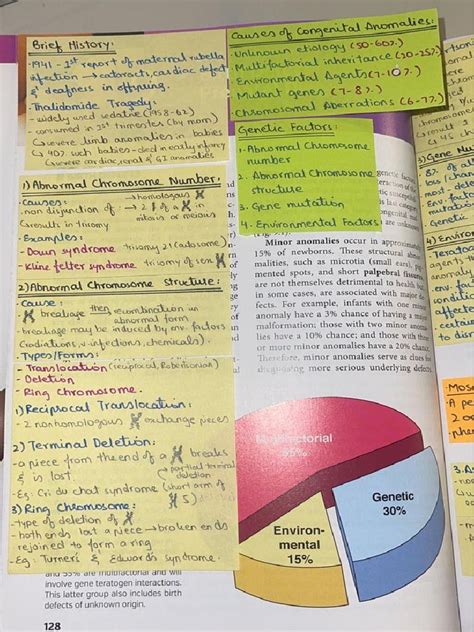 Brief History:
·1941 - 1st report of maternal rubella
infection → cataracts, cardiac defect
& deafness in offspring.
·Thalidomide Tragedy:
- widely used sedative (1958-62)
- consumed in 1st trimester (by mom)
↳severe limb anomalies in babies
↳ 40% such babies - died in early infancy
↳severe cardiac, renal & GI anomalies
Causes of Congenital Anomalies:
·Unknown etiology (50-60%)
·Multifactorial inheritance (20-25%)
·Environmental Agents (7-10%)
·Mutant genes (7-8%)
·Chromosomal Aberrations (6-7%)
Genetic Factors:
1. Abnormal Chromosome
number
2. Abnormal Chromosome
structure
3. Gene mutation
4. Environmental Factors
1) Abnormal Chromosome Number:
·Causes: → homologous
- non disjunction of → 2 of a in
mitosis or meiosis
↳results in trisomy
·Examples:
- Down syndrome trisomy 21 (autosome)
- Kline felter syndrome trisomy of sex
2) Abnormal Chromosome Structure:
·Cause:
- breakage then recombination in
abnormal form
- breakage may be induced by env. factors
(radiations, v. infections, chemicals).
·Types/Forms:
- Translocation (reciprocal, Robertsonian)
- Deletion
- Ring chromosome.
1) Reciprocal Translocation:
- 2 nonhomologous exchange pieces
2) Terminal Deletion:
- a piece from the end of a breaks
& is lost. ↳ partial terminal
deletion
- Eg: Cri du chat syndrome (short arm of
5)
3) Ring Chromosome:
- type of deletion of
- both ends lost a piece → broken ends
rejoined to form a ring
- Eg: Turner's & Edwards syndrome.
Minor anomalies occur in approximately
15% of newborns. These structural
malities, such as microtia (small ears), pig-
mented spots, and short palpebral
are not themselves detrimental to health
in some cases, are associated with major de-
fects. For example, infants with one minor
anomaly have a 3% chance of having a
malformation; those with two minor
lies have a 10% chance; and those with
or more minor anomalies have a 20% chance.
Therefore, minor anomalies serve as clues for
diagnosing more serious underlying defects.
Multifactorial
55%
Genetic
30%
Environ-
mental
15%
and 55% are multifactorial and will
involve gene teratogen interactions.
This latter group also includes birth
defects of unknown origin.
128